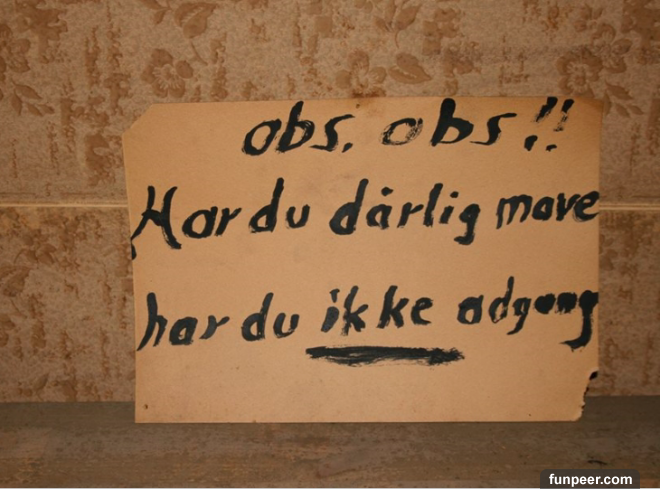 obs. obs!!
Har du dårlig mave
har du ikke adgang
funpeer.com